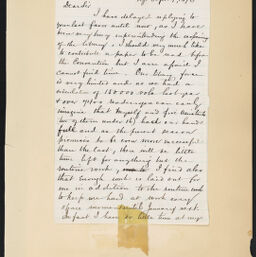 Dear Sir
I have delayed replying to
your last favor until now, as I have
been very busy superintending the
of the library. I should very much like
to contribute a paper to be read before
the Convention but I am afraid I
cannot find time. Our library force
is very limited and as we had a
circulation of 150000 vols. last year
& over readers you can easily
imagine that myself and five assistants
(or sixteen under 17) had our hands
full and as the present season
promises to be even more successful
than the last, there will be little
time left for anything but the
routine work. I find also
that enough work is laid out for
me in addition to the routine work
to keep me hard at work every
spare moment until January next.
In fact I have so little time at my